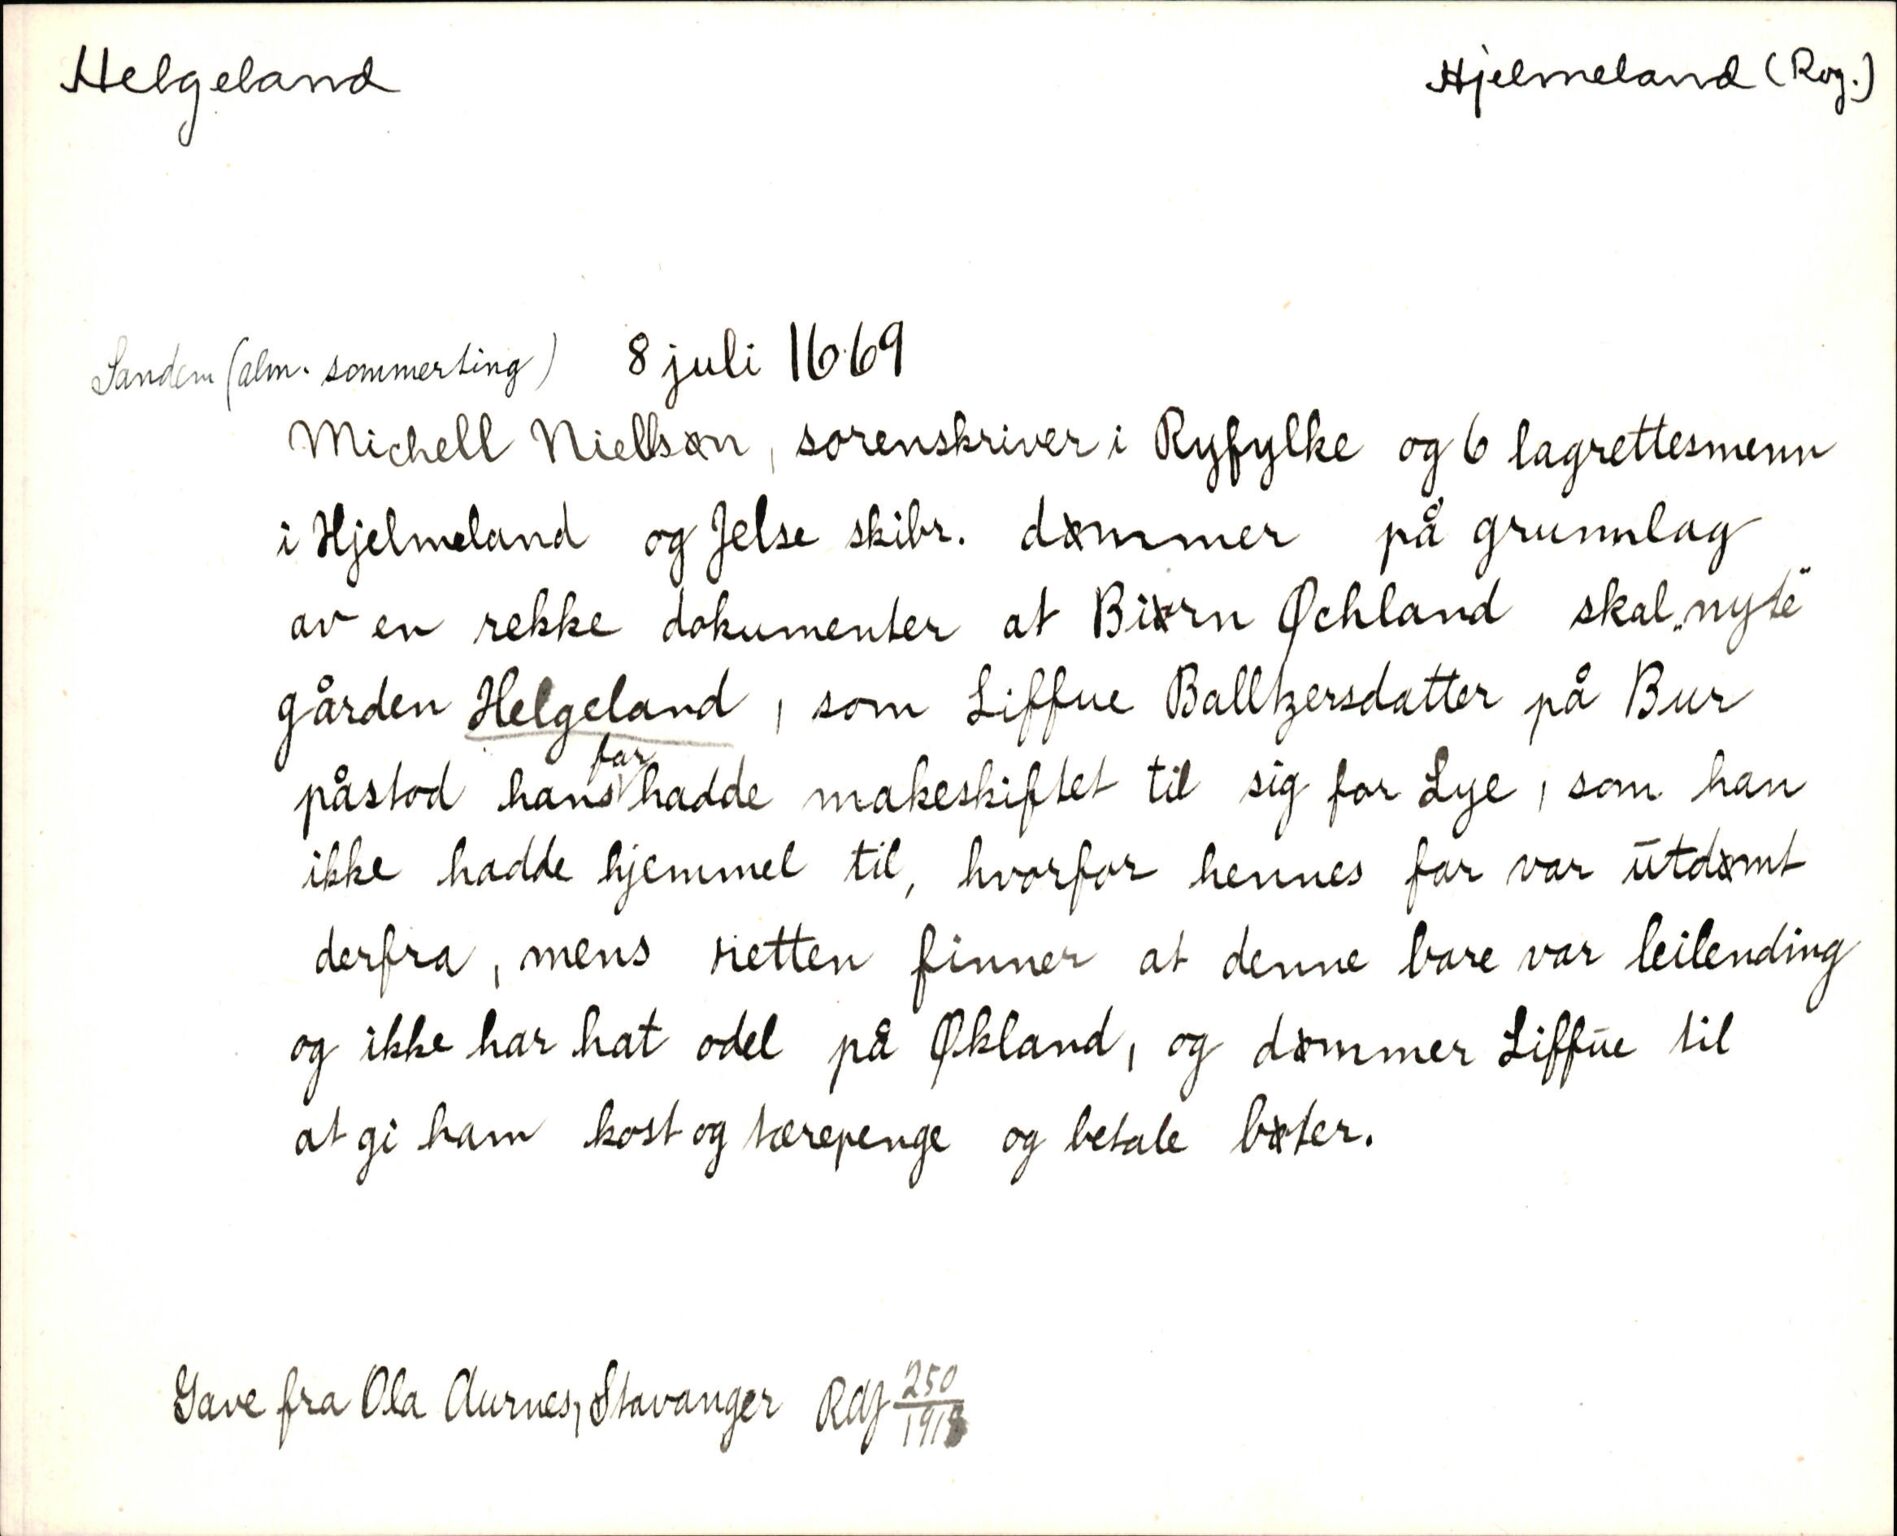 Helgeland
Hjelmeland (Rog.)
Sanden (alm. sommerting) 8 juli 1669
Michell Niellsøn, sorenskriver i Ryfylke og 6 lagrettesmenn
i Hjelmeland og Jelse skibr. dømmer på grunnlag
av en rekke dokumenter at Biørn Øchland skal „nyte"
gården Helgeland, som Liffue Balltzersdatter på Bur
påstod hans far hadde makeskiftet til sig for Lye, som han
ikke hadde hjemmel til, hvorfor hennes far var utdømt
derfra, mens retten finner at denne bare var leilending
og ikke har hat odel på Økland, og dømmer Liffue til
at gi ham kost og tærepenge og betale bøter.
Gave fra Ola Aurnes, Stavanger RAJ 250/1918